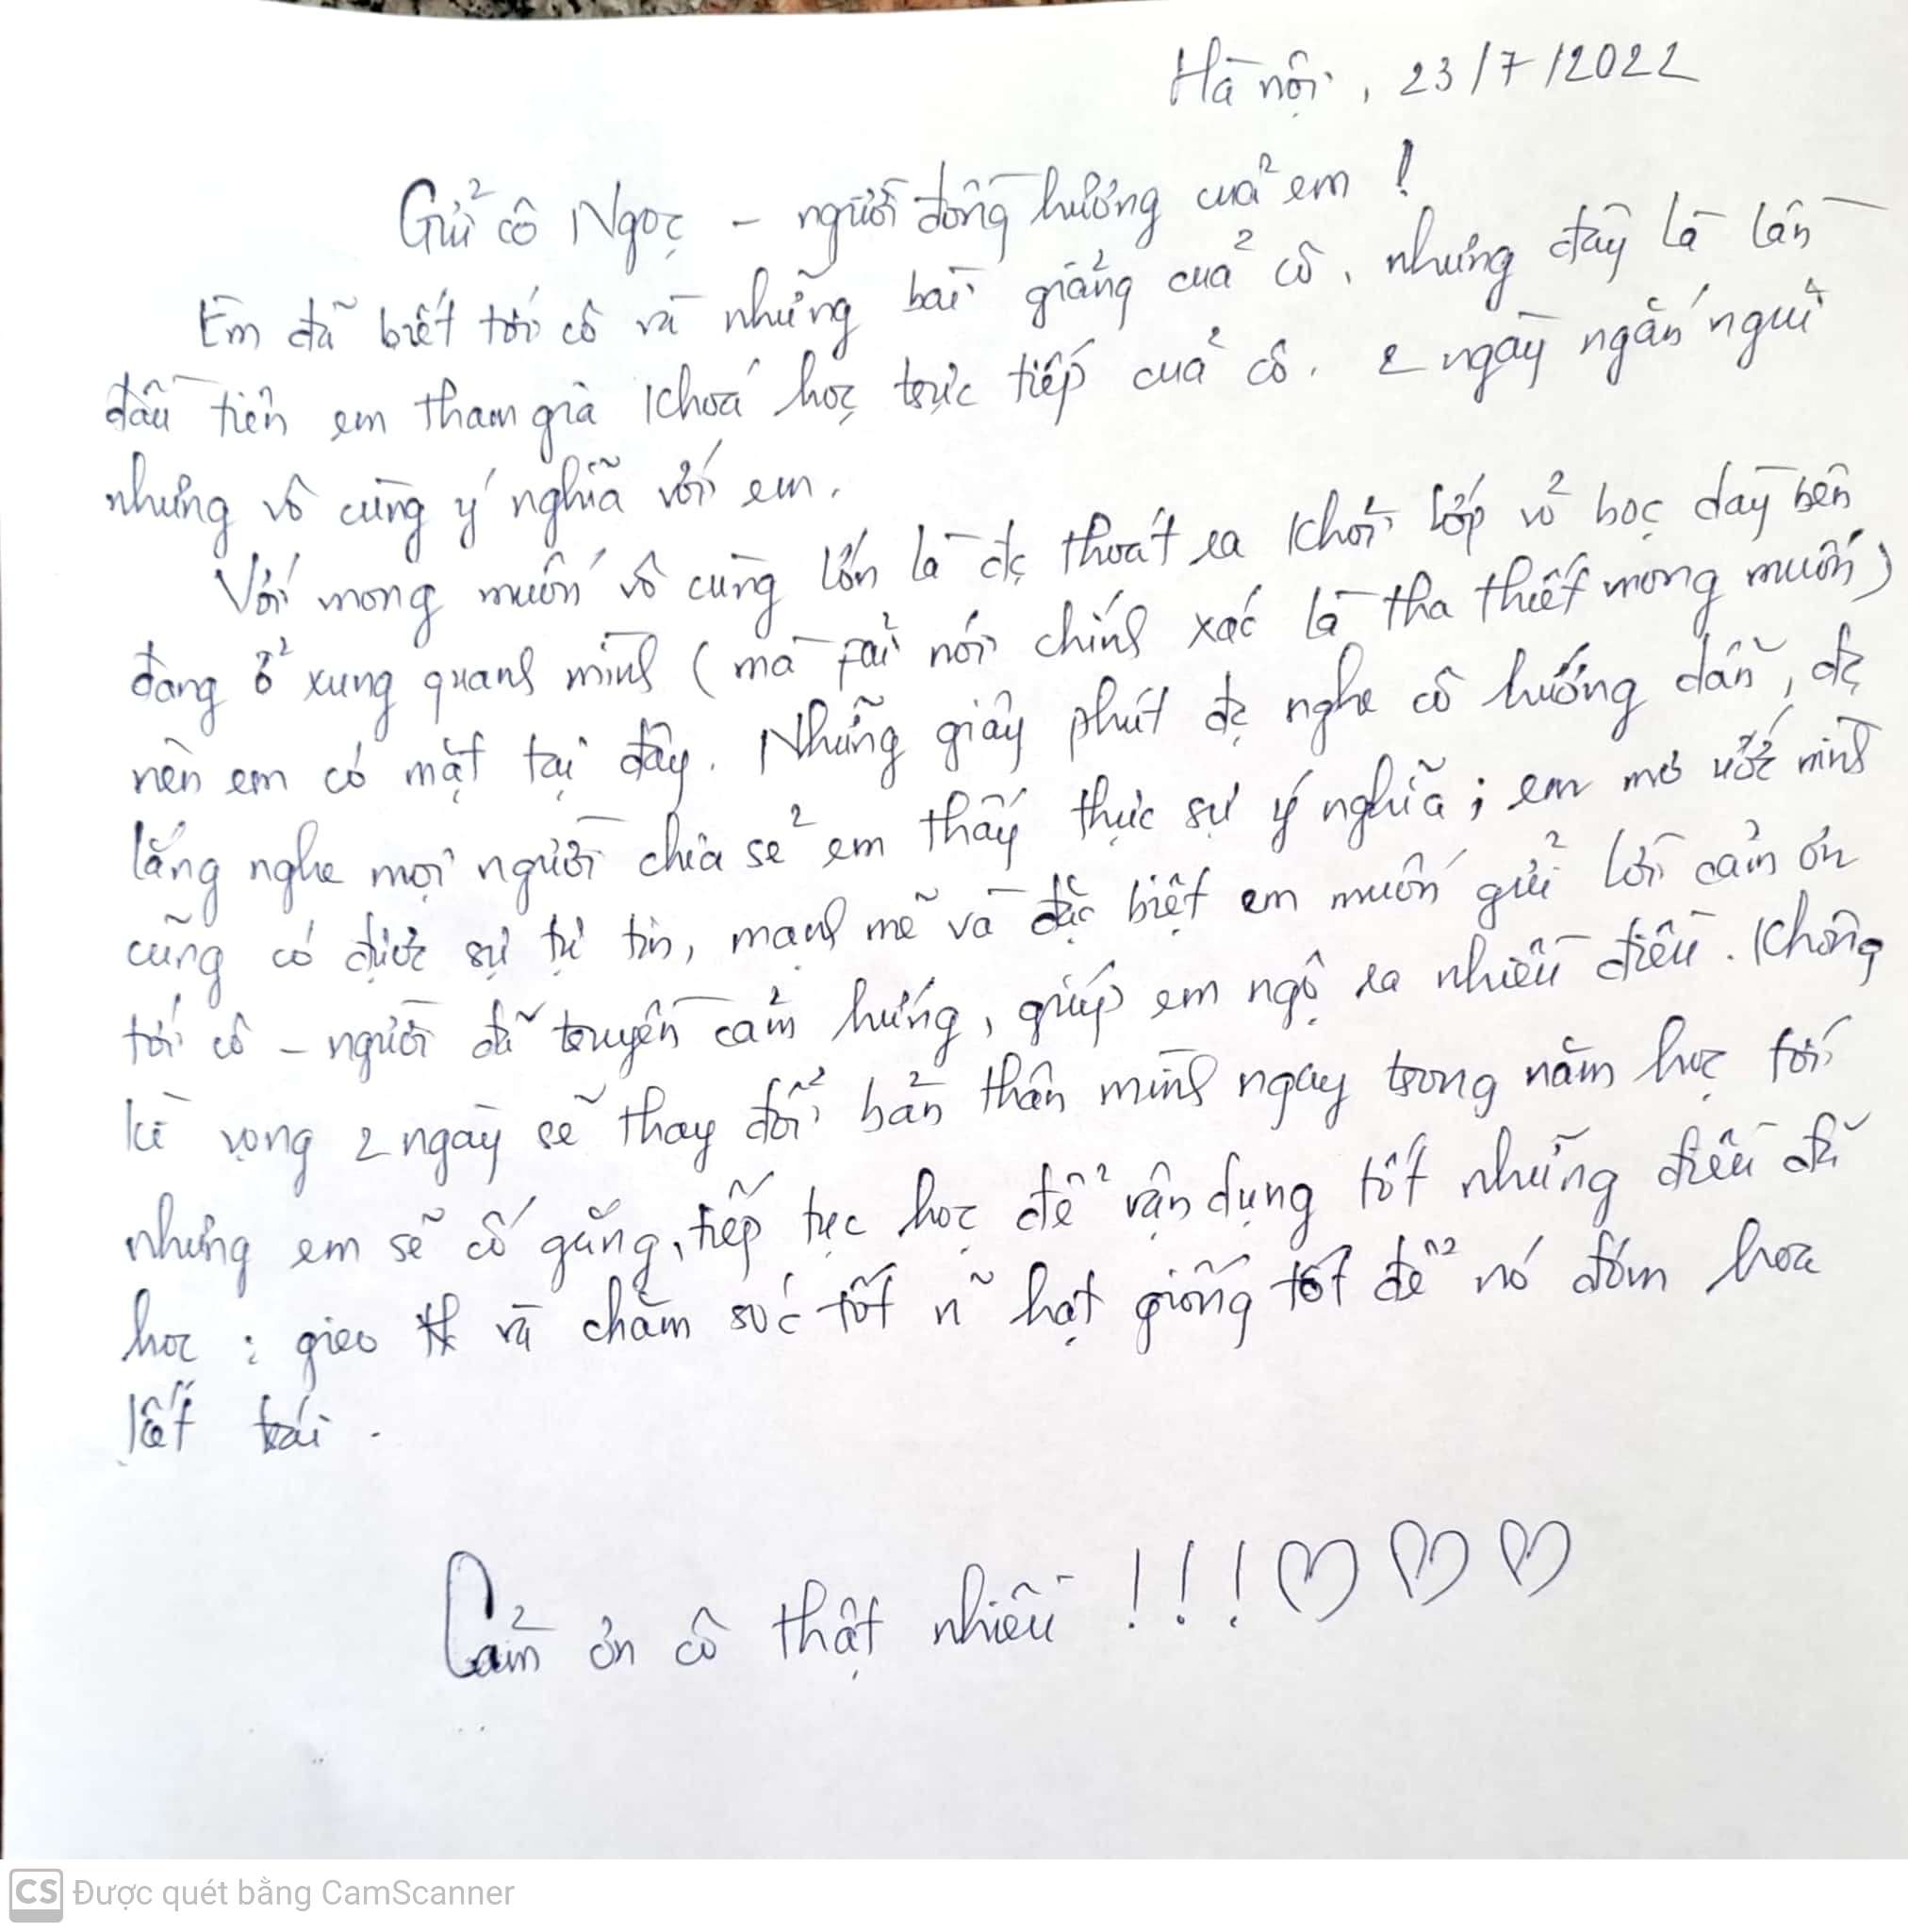 Hà nội, 23/7/2022
Gửi cô Ngọc - người đồng hương của em !
Em đã biết tới cô và những bài giảng của cô, nhưng đây là lần
đầu tiên em tham gia khoá học trực tiếp của cô. 2 ngày ngắn ngủi
nhưng vô cùng ý nghĩa với em.
Với mong muốn vô cùng lớn là đc thoát ra khỏi lớp vỏ bọc dày bên
đang ở xung quanh mình (mà fải nói chính xác là tha thiết mong muốn)
nên em có mặt tại đây. Những giây phút đc nghe cô hướng dẫn, đc
lắng nghe mọi người chia sẻ em thấy thực sự ý nghĩa; em mơ ước mình
cũng có được sự tự tin, mạnh mẽ và đặc biệt em muốn gửi lời cảm ơn
tới cô - người đã truyền cảm hứng, giúp em ngộ ra nhiều điều. Không
kì vọng 2 ngày sẽ thay đổi bản thân mình ngay trong năm học tới
nhưng em sẽ cố gắng, tiếp tục học để vận dụng tốt những điều đã
học : gieo và chăm sóc tốt n~ hạt giống tốt để nó đơm hoa
kết trái.
Cảm ơn cô thật nhiều !!! ♡ ♡ ♡
CS Được quét bằng CamScanner